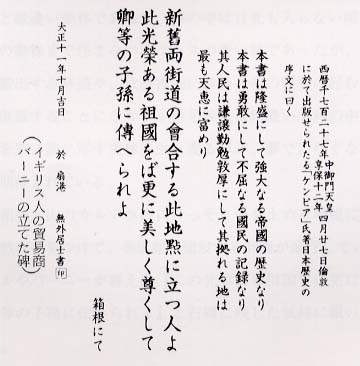 西暦千七百二十七年中御門天皇享保十二年四月廿七日倫敦
に於て出版せられたる「ケンピア」氏著日本歴史の
序文に曰く
本書は隆盛にして強大なる帝國の歴史なり
本書は勇敢にして不屈なる國民の記録なり
其人民は謙譲勤勉敦厚にして其拠れる地は
最も天恵に富めり
新舊両街道の會合する此地點に立つ人よ
此光榮ある祖國をば更に美しく尊くして
卿等の子孫に傳へられよ
箱根にて
大正十一年十月吉日 於 扇港 無外居士書 印
(イギリス人の貿易商
バーニーの立てた碑)